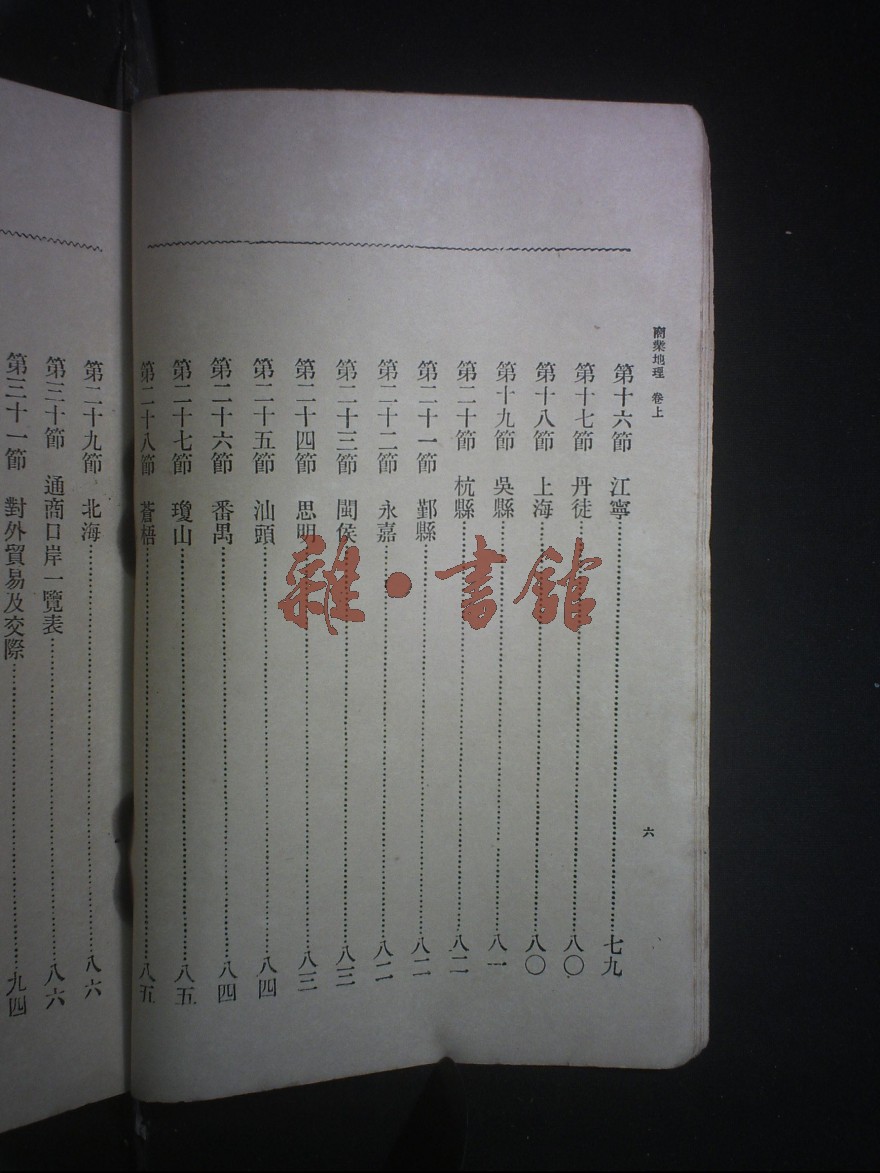 商業地理 卷上
六
第十六節 江寧……七九
第十七節 丹徒……八〇
第十八節 上海……八〇
第十九節 吳縣……八一
第二十節 杭縣……八二
第二十一節 鄞縣……八二
第二十二節 永嘉……八二
第二十三節 閩侯……八三
第二十四節 思明……八三
第二十五節 汕頭……八四
第二十六節 番禺……八四
第二十七節 瓊山……八五
第二十八節 蒼梧……八五
第二十九節 北海……八六
第三十節 通商口岸一覽表……八六
第三十一節 對外貿易及交際……九四
雜·書館